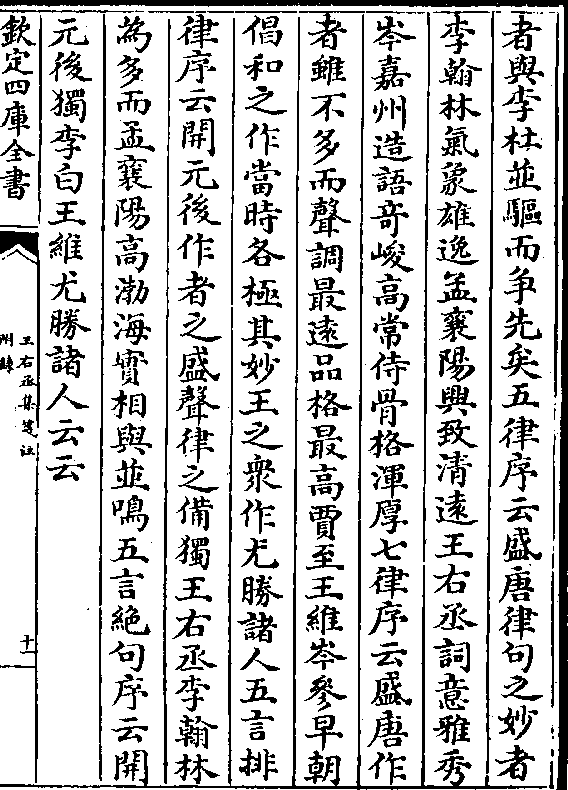 者與李杜並驅而爭先矣五律序云盛唐律句之妙者
李翰林氣象雄逸孟襄陽興致清遠王右丞詞意雅秀
岑嘉州造語奇峻高常侍骨格渾厚七律序云盛唐作
者雖不多而聲調最遠品格最高賈至王維岑參早朝
倡和之作當時各極其妙王之衆作尤勝諸人五言排
律序云開元後作者之盛聲律之備獨王右丞李翰林
為多而孟襄陽高渤海實相與並鳴五言絶句序云開
元後獨李白王維尤勝諸人云云
欽定四庫全書
王右丞集箋注
附録
十一